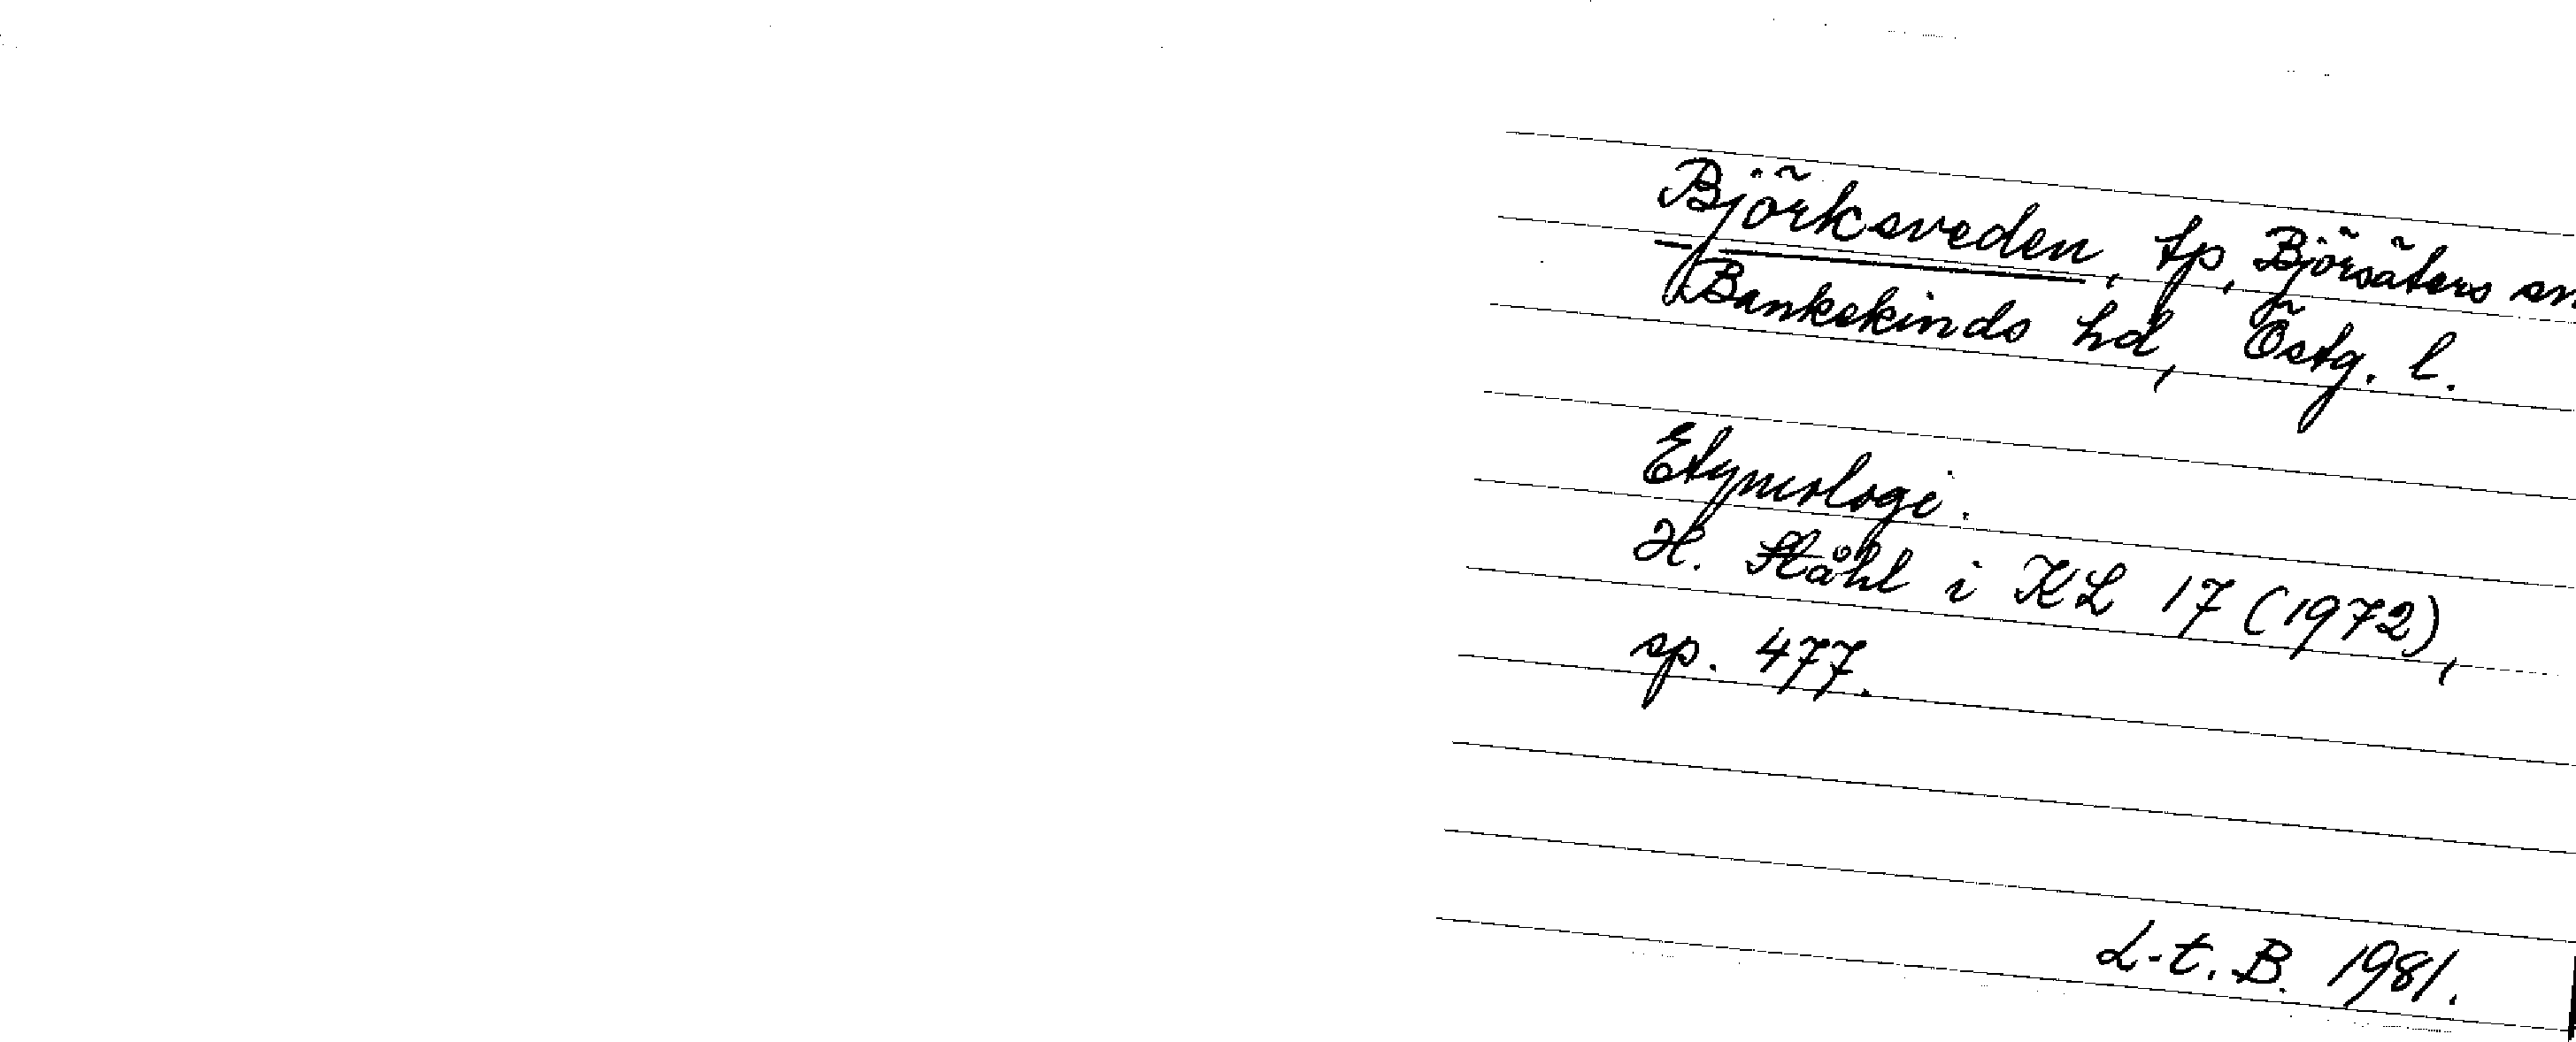 Björksveden, tp, Björsäters sn
Bankekinds hd, Östg. l.
Etymologi.
H. Ståhl i KL 17 (1972),
sp. 477.
L-t. B. 1981.